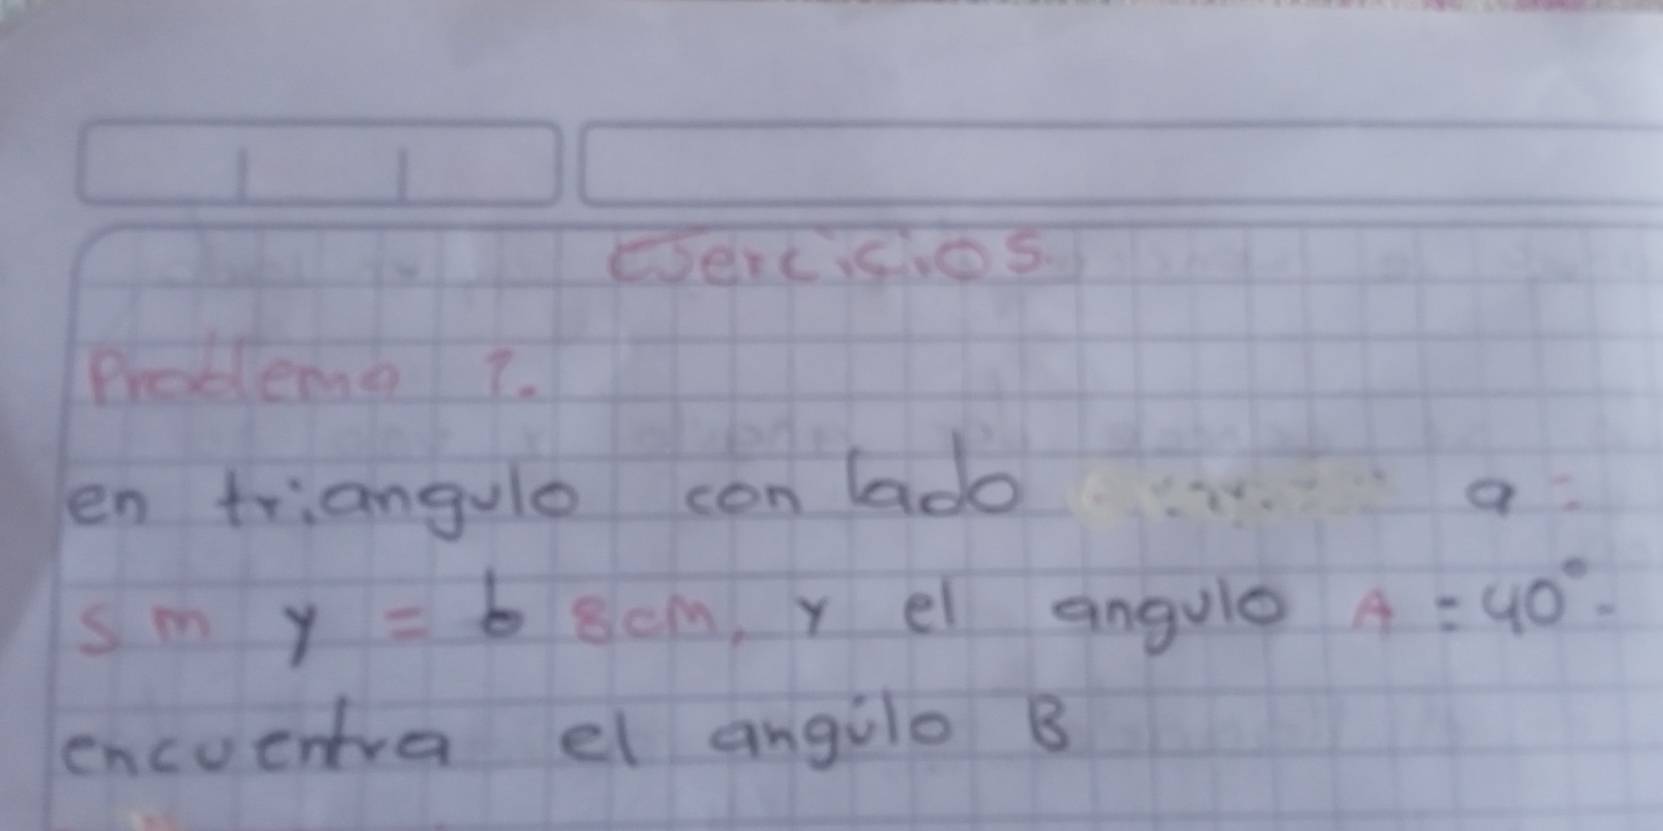 Ejercicios.
Problema 1.
en triangulo con lado a =
5 m y = b 8cm, y el angulo A = 40°.
encuentra el angulo B